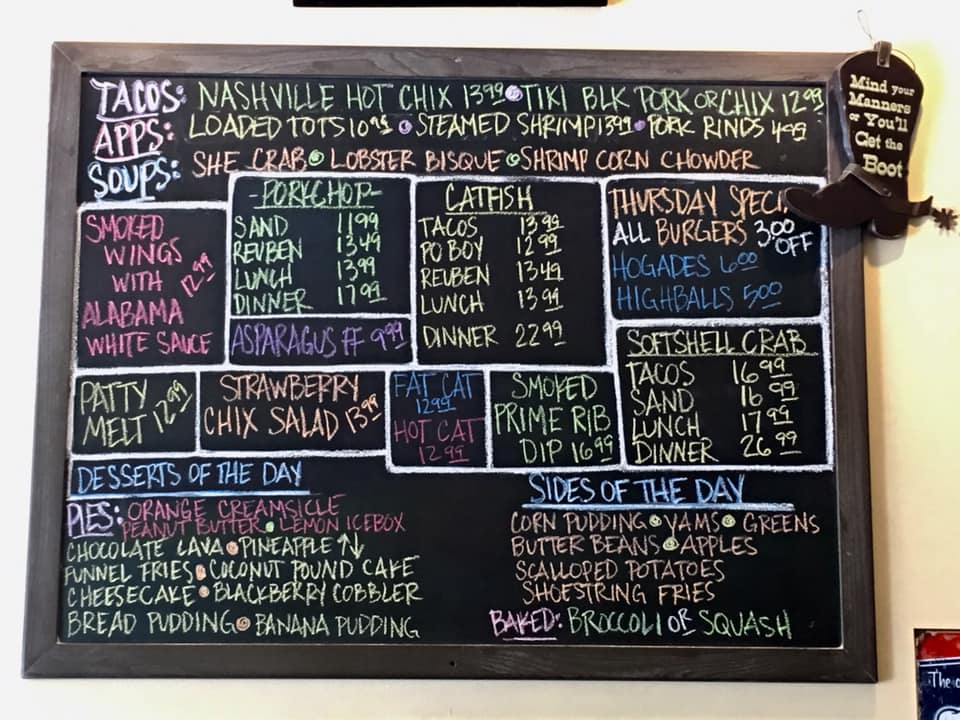 TACOS: NASHVILLE HOT CHIX 13.99 • TIKI BLK PORK OR CHIX 12.99
APPS: LOADED TOTS 10.99 • STEAMED SHRIMP 13.99 • PORK RINDS 4.99
SOUPS: SHE CRAB • LOBSTER BISQUE • SHRIMP CORN CHOWDER
Mind your
Manners
or You'll
Get the
Boot
SMOKED
WINGS
WITH 12.99
ALABAMA
WHITE SAUCE
PORKCHOP
SAND 11.99
REUBEN 13.49
LUNCH 13.99
DINNER 17.99
ASPARAGUS FF 9.99
CATFISH
TACOS 13.99
PO BOY 12.99
REUBEN 13.49
LUNCH 13.99
DINNER 22.99
THURSDAY SPECI
ALL BURGERS 3.00 OFF
HOGADES 6.00
HIGHBALLS 5.00
SOFTSHELL CRAB
TACOS 16.99
SAND 16.99
LUNCH 17.99
DINNER 26.99
PATTY
MELT 12.99
STRAWBERRY
CHIX SALAD 13.99
FAT CAT
12.99
HOT CAT
12.99
SMOKED
PRIME RIB
DIP 16.99
DESSERTS OF THE DAY
PIES: ORANGE CREAMSICLE
PEANUT BUTTER • LEMON ICEBOX
CHOCOLATE LAVA • PINEAPPLE ↑↓
FUNNEL FRIES • COCONUT POUND CAKE
CHEESECAKE • BLACKBERRY COBBLER
BREAD PUDDING • BANANA PUDDING
SIDES OF THE DAY
CORN PUDDING • YAMS • GREENS
BUTTER BEANS • APPLES
SCALLOPED POTATOES
SHOESTRING FRIES
BAKED: BROCCOLI OR SQUASH
The